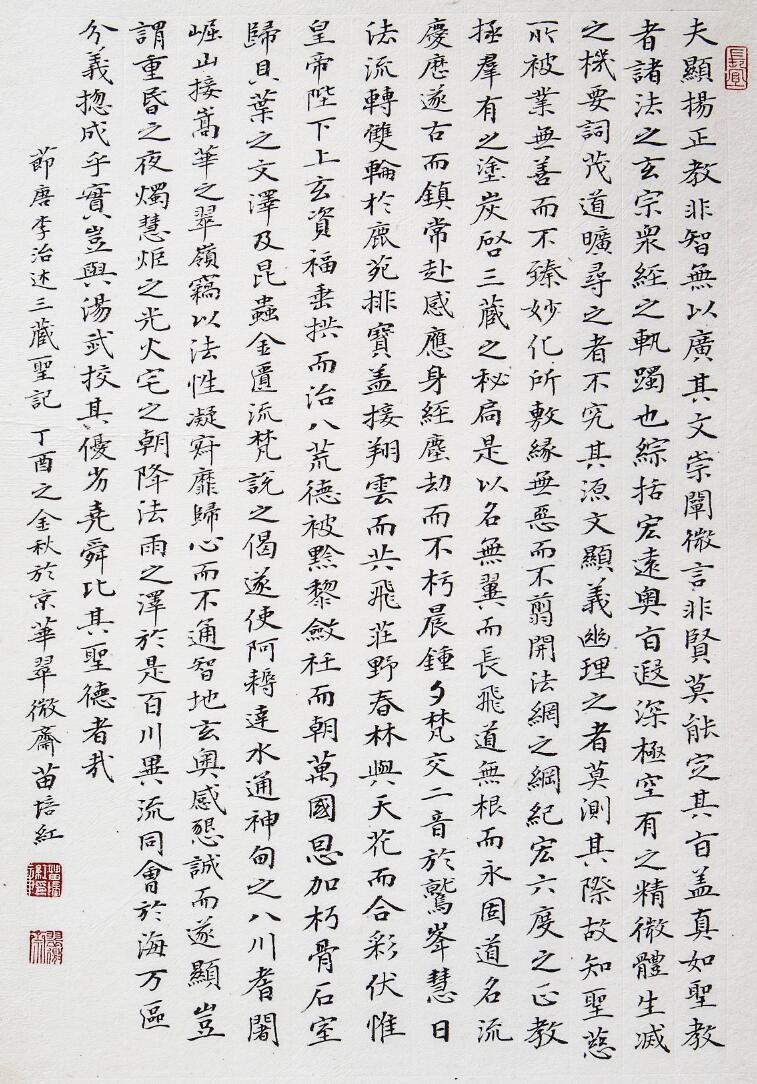 夫顯揚正教非智無以廣其文崇闡微言非賢莫能定其旨盖真如聖教
者諸法之玄宗衆經之軌躅也綜括宏遠奧旨遐深極空有之精微體生滅
之機要詞茂道曠尋之者不究其源文顯義幽理之者莫測其際故知聖慈
所被業無善而不臻妙化所敷緣無惡而不翦開法網之綱紀宏六度之正教
拯羣有之塗炭啓三藏之秘扃是以名無翼而長飛道無根而永固道名流
慶歷遂古而鎮常赴感應身經塵劫而不朽晨鐘夕梵交二音於鷲峯慧日
法流轉雙輪於鹿苑排寶盖接翔雲而共飛莊野春林與天花而合彩伏惟
皇帝陛下上玄資福垂拱而治八荒德被黔黎斂衽而朝萬國恩加朽骨石室
歸貝葉之文澤及昆蟲金匱流梵說之偈遂使阿耨達水通神甸之八川耆闍
崛山接嵩華之翠嶺竊以法性凝寂靡歸心而不通智地玄奧感懇誠而遂顯豈
謂重昏之夜燭慧炬之光火宅之朝降法雨之澤於是百川異流同會於海万區
分義揔成乎實豈與湯武挍其優劣堯舜比其聖德者哉
節唐李治述三藏聖記 丁酉之金秋於京華翠微齋苗培紅